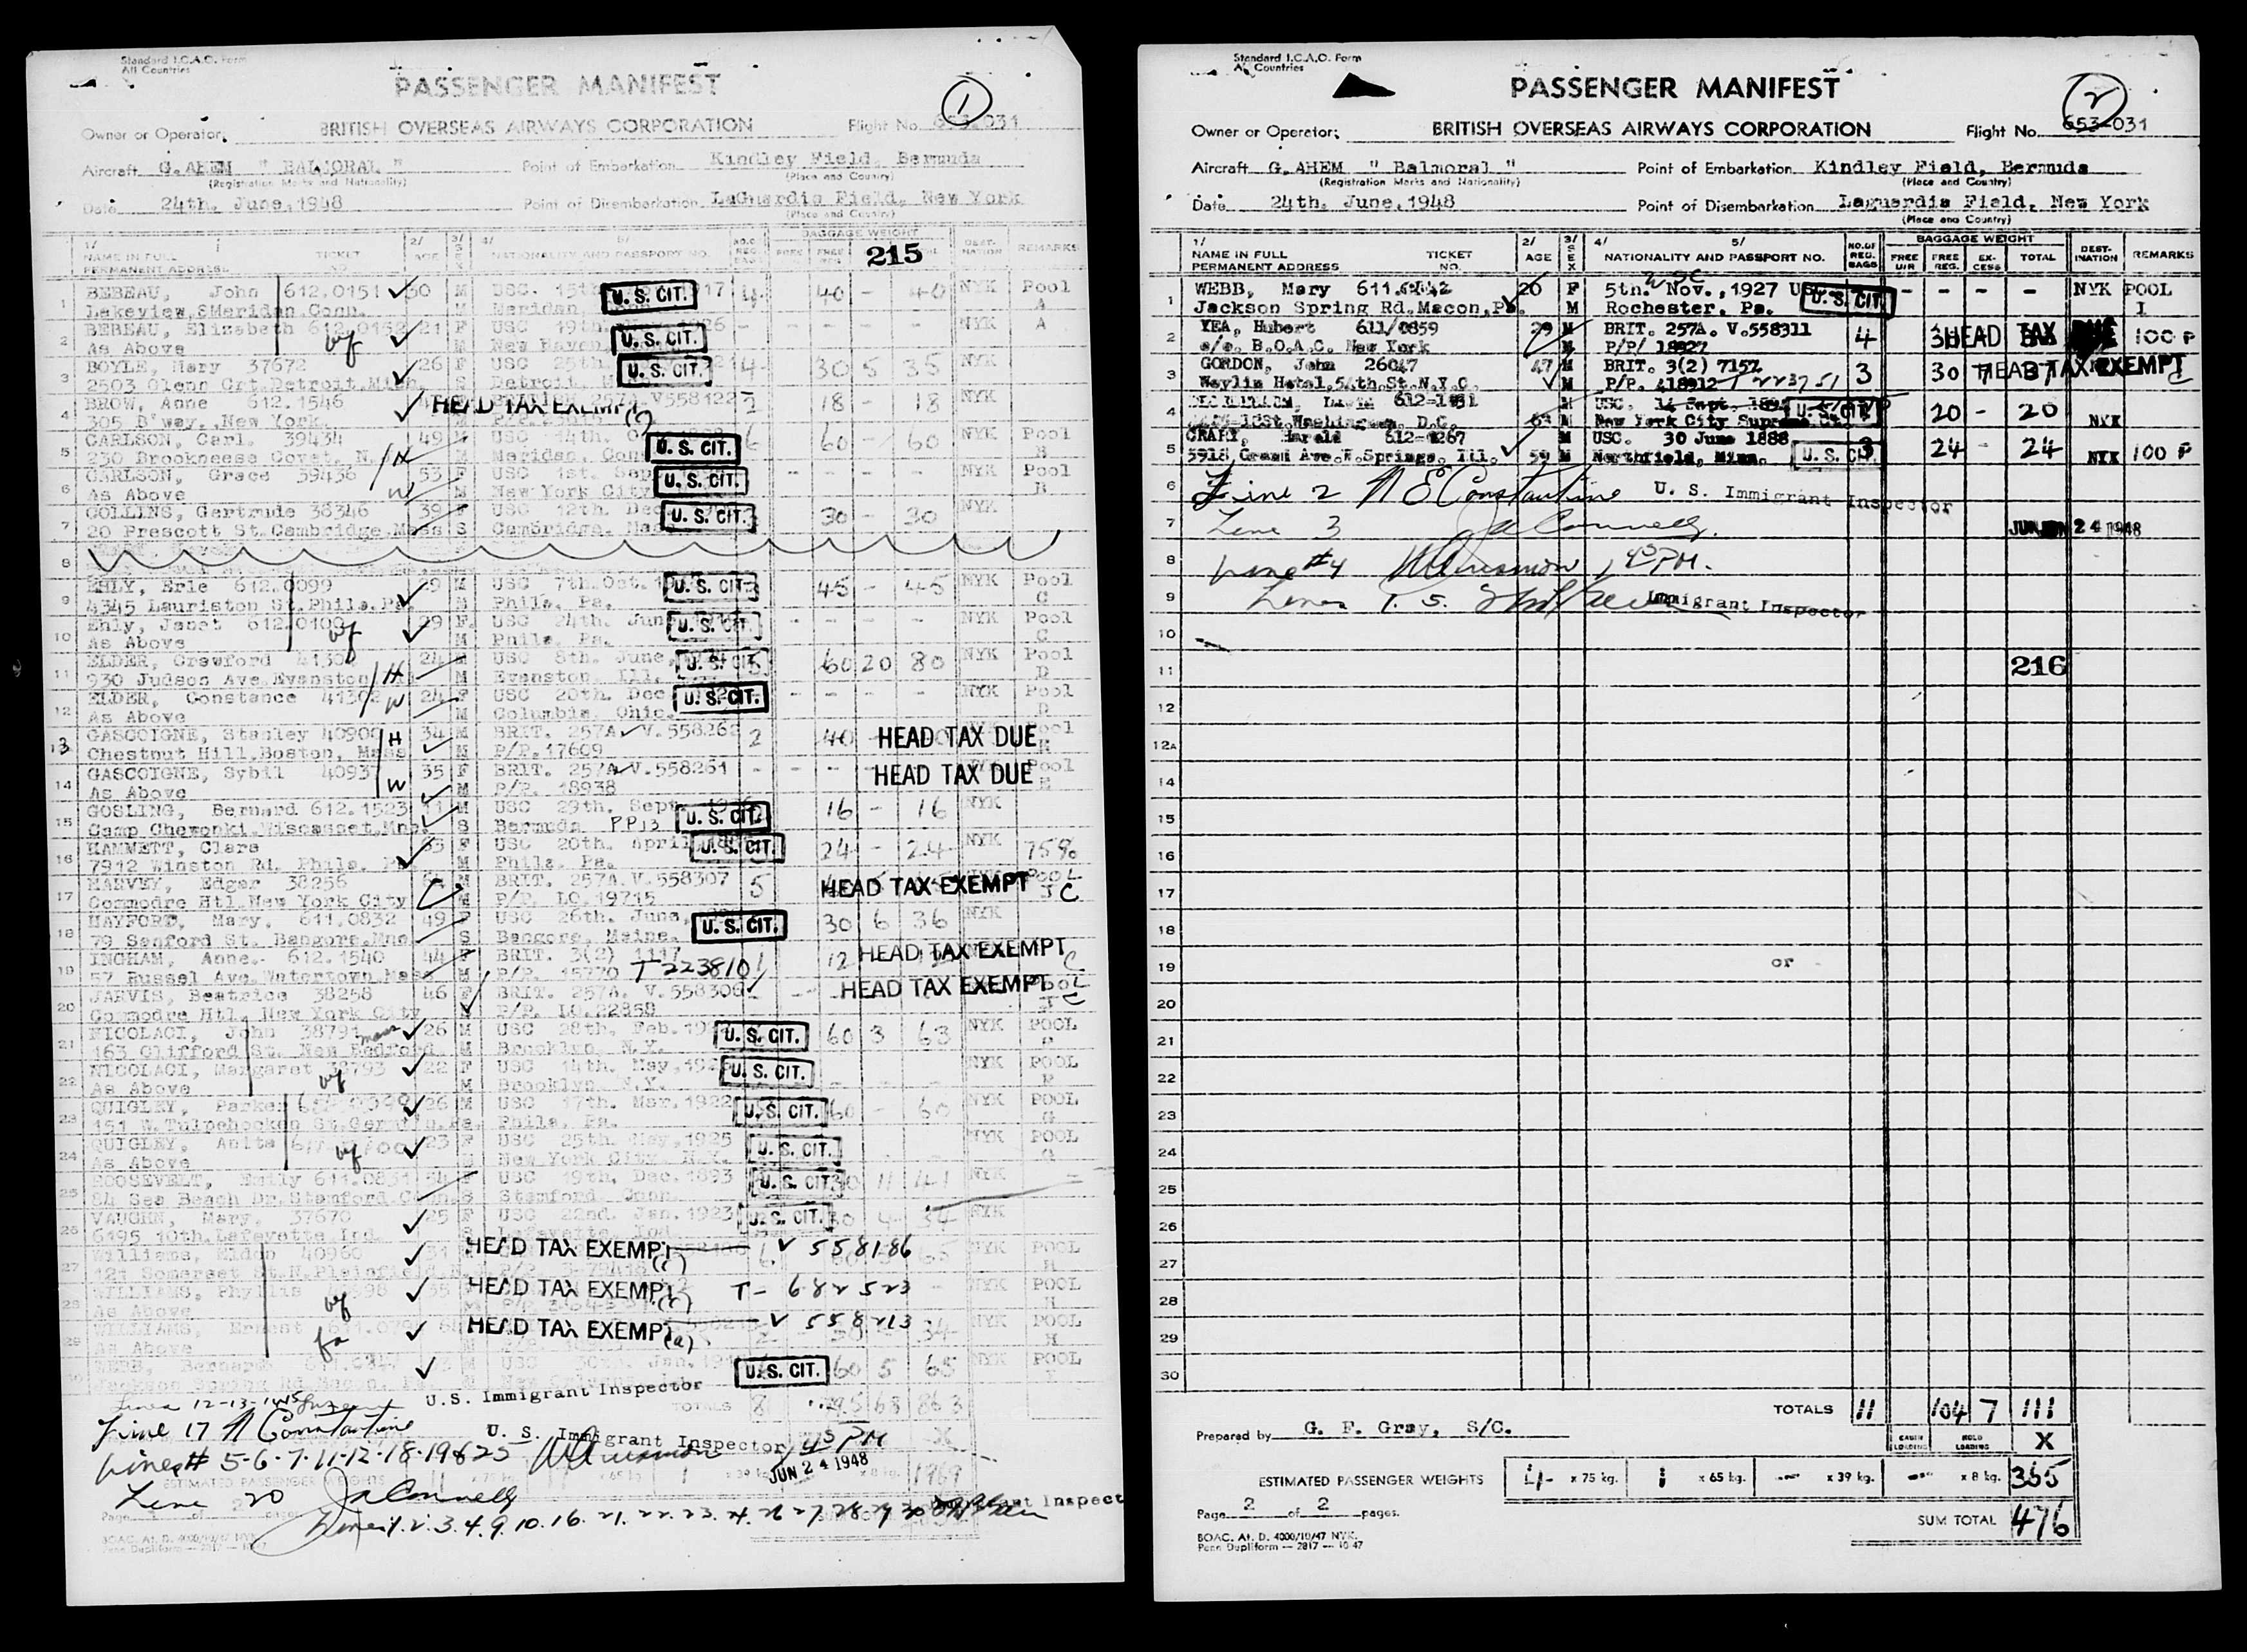 Standard I.C.A.O. Form
All Countries
PASSENGER MANIFEST
1
Owner or Operator: BRITISH OVERSEAS AIRWAYS CORPORATION Flight No. 653-031
Aircraft G.AHEM " BALMORAL " Point of Embarkation Kindley Field, Bermuda
(Registration Marks and Nationality) (Place and Country)
Date 24th. June,1948 Point of Disembarkation LaGuardia Field, New York
(Place and Country)
1/ 2/ 3/ 4/ 5/ BAGGAGE WEIGHT
NAME IN FULL TICKET NO. AGE SEX NATIONALITY AND PASSPORT NO. FREE 215 DEST-INATION REMARKS
PERMANENT ADDRESS
1 BEBEAU, John 612.0151 30 M USC. 15th U.S. CIT. 4 40 - 40 NYK Pool A
Lakeview,SMeridan.Conn. M Meridan
2 BEBEAU, Elizabeth 612.0152 21 F USC 19th U.S. CIT. - - - - NYK A
As Above wf M New Haven
3 BOYLE, Mary 37672 26 F USC 25th U.S. CIT. 4 30 5 35 NYK
2503 Glenn Crt.Detroit.Mich. S Detroit
4 BROW, Anne 612.1546 HEAD TAX EXEMPT V558122 2 18 - 18 NYK
305 B'way.,New York.
5 CARLSON, Carl. 39434 49 M USC 14th. U.S. CIT. 6 60 - 60 NYK Pool B
230 Brookneese Covet. N. H M Meriden, Conn
6 CARLSON, Grace 39436 53 F USC 1st. Sep U.S. CIT. - - - - NYK Pool B
As Above W M New York City
7 COLLINS, Gertrude 38346 39 F USC 12th. Dec U.S. CIT. 30 - 30 NYK
20 Prescott St.Cambridge.Mass S Cambridge. Mass
8
9 EHLY, Erle 612.0099 29 M USC 7th.Oct. U.S. CIT. 45 - 45 NYK Pool C
4345 Lauriston St.Phila.Pa. M Phila. Pa.
10 Ehly, Janet 612.0100 29 F. USC 24th. Jun U.S. CIT. - - - NYK Pool C
As Above wf M Phila. Pa.
11 ELDER, Crawford 41300 24 M USC 8th. June, U.S. CIT. 60 20 80 NYK Pool D
930 Judson Ave.Evanston H M Evanston, Ill.
12 ELDER, Constance 41302 24 F USC 20th. Dec U.S. CIT. - - - - NYK Pool D
As Above W M Columbia, Ohio.
13 GASCOIGNE, Stanley 40900 34 M BRIT. 257A. V.558262 2 40 HEAD TAX DUE
Chestnut Hill,Boston, Mass H M P/P.17609
14 GASCOIGNE, Sybil 40937 35 F BRIT. 257A V.558261 - - - HEAD TAX DUE Pool E
As Above W M P/P. 18938
15 GOSLING, Bernard 612.1523 11 M USC 29th. Sept. U.S. CIT. 16 - 16 NYK
Camp Chewonki.Wiscasset.Mne. S Bermuda PP13
16 HAMMETT, Clara 53 F USC 20th. April U.S. CIT. 24 - 24 NYK 75%
7912 Winston Rd. Phila. Pa. M Phila. Pa.
17 HARVEY, Edgar 38256 M BRIT. 257A.V.558307 5 HEAD TAX EXEMPT Pool J C
Commodre Htl.New York City M P/P. LO.19715
18 HAYFORD, Mary. 611.0832 49 F USC 26th. June, U.S. CIT. 30 6 36 NYK
79 Sanford St. Bangore.Mne. S Bangore, Maine.
19 INGHAM, Anne.- 612.1540 44 F BRIT. 3(2) 1117 1 12 HEAD TAX EXEMPT C
57 Russel Ave.Watertown.Mass M P/P. 15770 T223810
20 JARVIS, Beatrice 38258 46 F BRIT. 257A. V.558306 HEAD TAX EXEMPT Pool J C
Commodre Htl. New York City M P/P. LO.22858
21 NICOLACI, John 38791 26 M USC 28th. Feb.19 U.S. CIT. 60 3 63 NYK POOL
163 Clifford St. New Bedford. M Brooklyn. N.Y.
22 NICOLACI, Margaret 38793 22 F USC 14th. May,192 U.S. CIT. - - - NYK POOL
As Above wf M Brooklyn. N.Y.
23 QUIGLEY, Parker 26 M USC 17th. Mar.1922 U.S. CIT. 60 - 60 NYK POOL G
151 W.Tulpehocken St.Germ'tn.Pa. Phila. Pa.
24 QUIGLEY, Anita 23 F USC 25th. May,1925 U.S. CIT. NYK POOL G
As Above wf New York City, N.Y.
25 ROOSEVELT, Emily 611.0831 54 F USC 19th. Dec.1893 U.S. CIT. 30 11 41 NYK
84 Sea Beach Dr.Stamford.Conn. S Stamford. Conn.
26 VAUGHN, Mary. 37670 25 F USC 22nd. Jan.1923 U.S. CIT. 30 4 34 NYK
6195 10th.Lafayette Ind. Lafayette Ind.
27 Williams, Eldon 40960 31 HEAD TAX EXEMPT (c) V 558186 NYK POOL H
121 Somerset St.N.Plainfield.
28 WILLIAMS, Phyllis 35 HEAD TAX EXEMPT (c) T- 682523 NYK POOL H
As Above wf
29 WILLIAMS, Ernest HEAD TAX EXEMPT (a) V 558213 34 NYK POOL H
As Above fa
30 WEBB, Bernard M USC 30th. Jan. U.S. CIT. 60 5 65 NYK POOL
Jackson Spring Rd.Macon.
U.S. Immigrant Inspector
TOTALS 795 63 863
Line 17 N Constantine
U. S. Immigrant Inspector 1 45 PM
Lines # 5-6-7-11-12-18-19&25
JUN 24 1948
ESTIMATED PASSENGER WEIGHTS 1969
Line 20 JaConnelly
Immigrant Inspector
Lines 1.2.3.4.9.10.16.21.22.23.24.26 27.28.29 30
BOAC. At. D. 4000/10/47 NYK.
Penn Dupliform — 2817 — 10-47
Standard I.C.A.O. Form
All Countries
PASSENGER MANIFEST
2
Owner or Operator: BRITISH OVERSEAS AIRWAYS CORPORATION Flight No. 653-031
Aircraft G.AHEM " Balmoral " Point of Embarkation Kindley Field, Bermuda
(Registration Marks and Nationality) (Place and Country)
Date 24th. June,1948 Point of Disembarkation Laguardia Field, New York
(Place and Country)
1/ 2/ 3/ 4/ 5/ NO.OF REG. BAGS BAGGAGE WEIGHT DEST-INATION REMARKS
NAME IN FULL TICKET NO. AGE SEX NATIONALITY AND PASSPORT NO. FREE U/R FREE REG. EX-CESS TOTAL
PERMANENT ADDRESS
1 WEBB, Mary 611.0842 20 F 5th. Nov.,1927 USC U.S. CIT. - - - - NYK POOL I
Jackson Spring Rd.Macon,Pa. M Rochester. Pa.
2 YEA, Hubert 611/0859 29 M BRIT. 257A. V.558311 4 HEAD TAX DUE 100 P
c/o. B.O.A.C. New York M P/P/ 18927
3 GORDON, John 26047 47 M BRIT. 3(2) 7157 3 30 7 37 HEAD TAX EXEMPT C
Weylin Hotel,54th.St.N.Y.C. M P/P. 418912 T 223751
4 612-1 M USC. 14 Sept. U.S. CIT. 20 - 20 NYK
Washington, D.C. 64 M New York City
5 CRARY, Harold 612-0267 M USC. 30 June 1888 U.S. CIT. 3 24 - 24 NYK 100 P
5918 Grand Ave.W.Springs, Ill. 59 M Northfield, Minn.
6 Line 2 N E Constantine U. S. Immigrant Inspector
7 Line 3 JaConnelly. JUN 24 1948
8 Line #4 1 45 PM.
9 Lines 1. 5. Immigrant Inspector
10
11 216
12
12A
14
15
16
17
18
19 or
20
21
22
23
24
25
26
27
28
29
30
TOTALS 11 104 7 111
Prepared by G. F. Gray, S/C. CABIN LOADING HOLD LOADING X
ESTIMATED PASSENGER WEIGHTS 4 x 75 kg. 1 x 65 kg. — x 39 kg. — x 8 kg. 365
Page 2 of 2 pages.
SUM TOTAL 476
BOAC. At. D. 4000/10/47 NYK.
Penn Dupliform — 2817 — 10-47